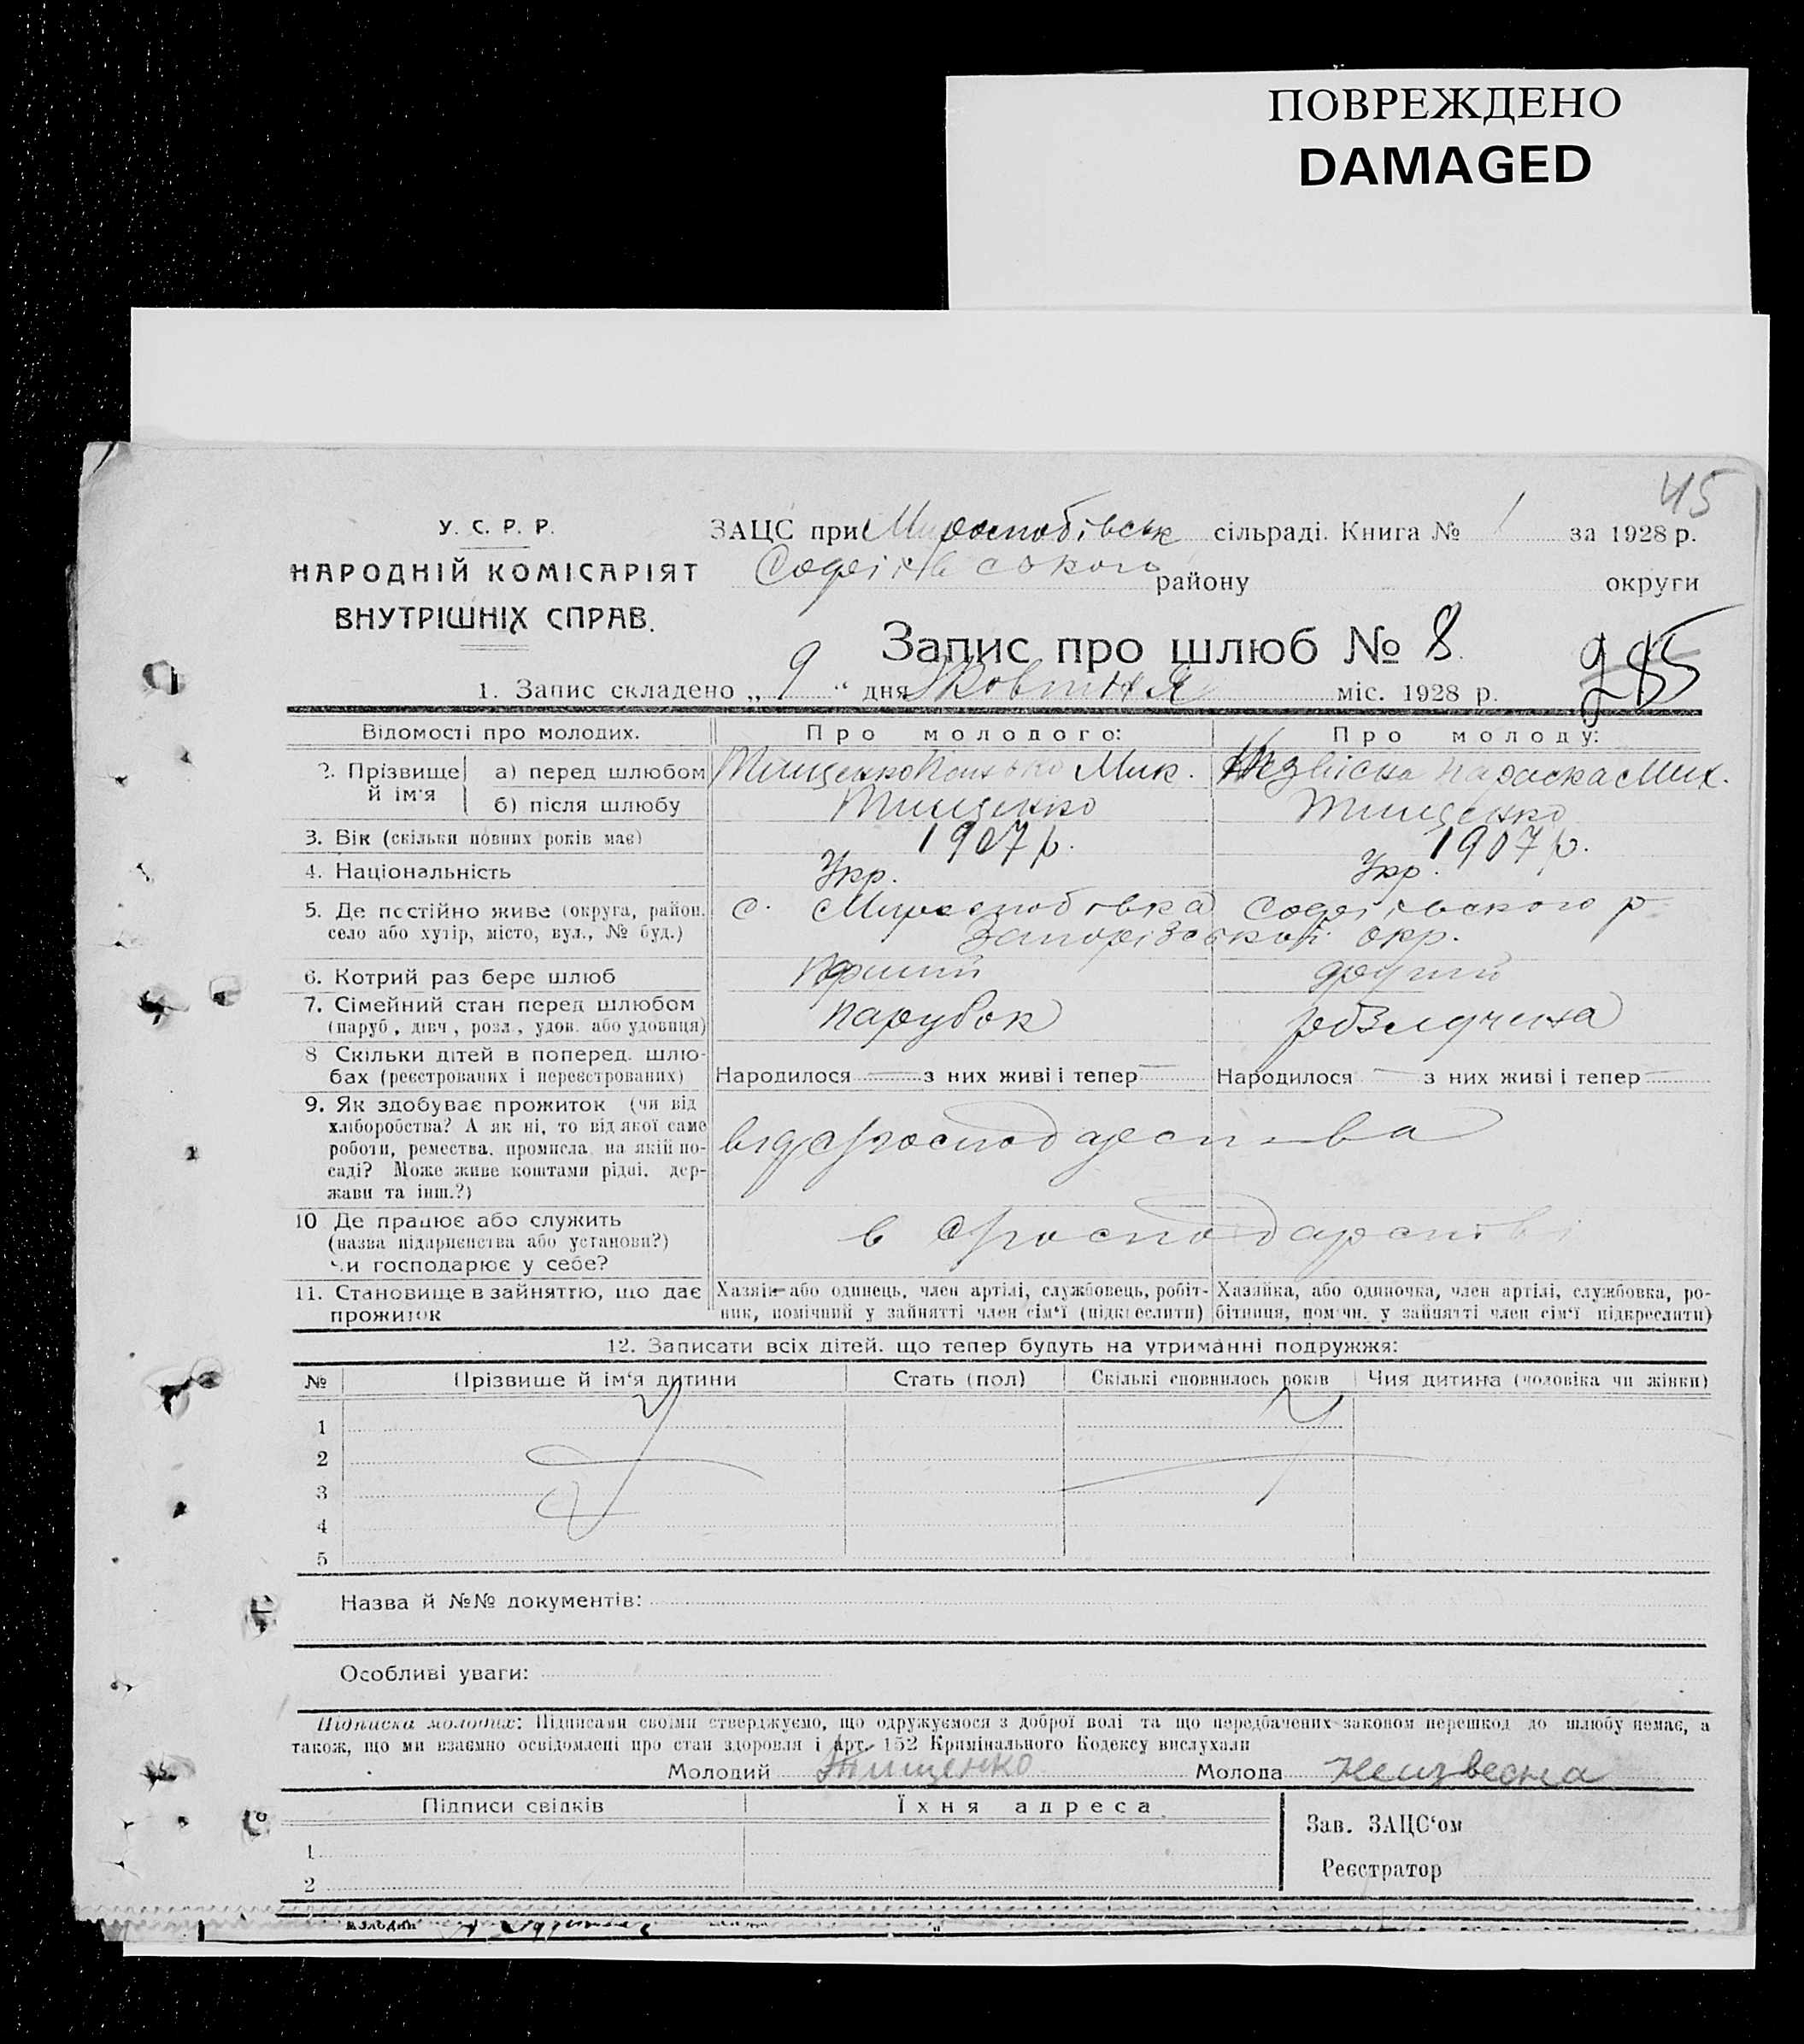 ПОВРЕЖДЕНО
DAMAGED
45
У. С. Р. Р.
НАРОДНІЙ КОМІСАРІЯТ
ВНУТРІШНІХ СПРАВ.
ЗАЦС при сільраді. Книга № 1 за 1928 р.
району округи
Запис про шлюб № 8.
285
1. Запис складено „ 9 “ дня жовтня міс. 1928 р.
Відомості про молодих. Про молодого: Про молоду:
2. Прізвище й ім'я а) перед шлюбом Тищенко Мик. Параска Мих.
б) після шлюбу Тищенко Тищенко
3. Вік (скільки повних років має) 1907 р. 1907 р.
4. Національність Укр. Укр.
5. Де постійно живе (округа, район, село або хутір, місто, вул., № буд.) с. р
Запорізської окр.
6. Котрий раз бере шлюб перший другий
7. Сімейний стан перед шлюбом (паруб., дівч., розл., удов. або удовиця) парубок розлучена
8 Скільки дітей в поперед. шлюбах (реєстрованих і нереєстрованих) Народилося — з них живі і тепер — Народилося — з них живі і тепер —
9. Як здобуває прожиток (чи від
хліборобства? А як ні, то від якої саме
роботи, ремества, промисла, на якій по-
саді? Може живе коштами рідні, дер-
жави та інш.?)
від господарства
10 Де працює або служить
(назва підприємства або установи?)
чи господарює у себе?
в господарстві
11. Становище в зайняттю, що дає прожиток
Хазяїн або одинець, член артілі, службовець, робіт-
ник, помічний у зайнятті член сім'ї (підкреслити)
Хазяйка, або одиночка, член артілі, службовка, ро-
бітниця, помічн. у зайнятті член сім'ї підкреслити)
12. Записати всіх дітей, що тепер будуть на утриманні подружжя:
№ Прізвище й ім'я дитини Стать (пол) Скількі сповнилось років Чия дитина (чоловіка чи жінки)
1
2
3
4
5
Назва й №№ документів:
Особливі уваги:
Підписка молодих: Підписами своїми стверджуємо, що одружуємося з доброї волі та що передбачених законом перешкод до шлюбу немає, а
також, що ми взаємно освідомлені про стан здоровля і арт. 152 Кримінального Кодексу вислухали
Молодий Тищенко Молода Неизвесна
Підписи свідків Їхня адреса
Зав. ЗАЦС'ом
1
Реєстратор
2